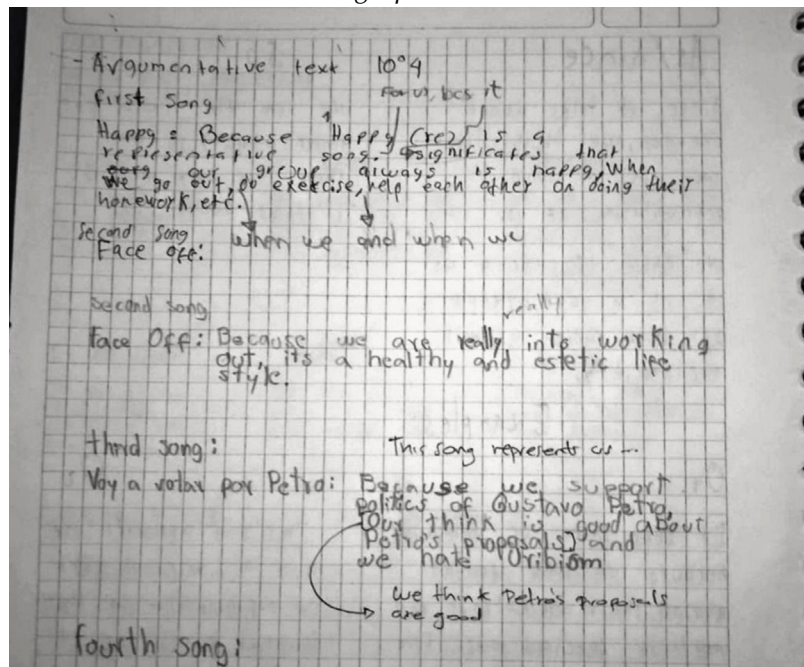 - Argumentative text 10°4
first song
for us, bcs it
Happy: Because Happy (re) is a
representative song. significates that
our group always is happy, when
we go out, do exercise, help each other on doing their
homework, etc.
second song
Face off: when we and when we
second song
really
Face Off: Because we are really into working
out, its a healthy and estetic life
style.
third song: This song represents us --
Voy a votar por Petro: Because we support
politics of Gustavo Petro,
[Our think is good about
Petro's proposals] and
we hate Uribism
we think Petro's proposals
are good
fourth song: